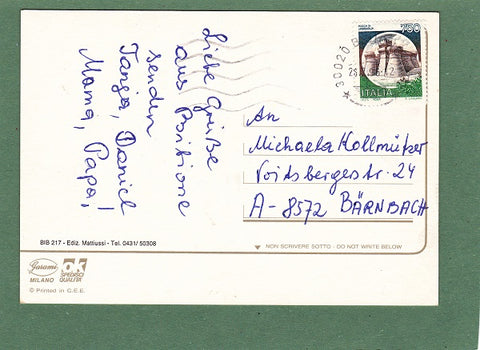 Liebe Grüße
aus Bibione
senden
Tanja, Daniel
Mama, Papa!
750
ITALIA
30020
An
Michaela Kollmützer
Voitsbergerstr. 24
A-8572 BÄRNBACH
BIB 217 - Ediz. Mattiussi - Tel. 0431/50308
NON SCRIVERE SOTTO - DO NOT WRITE BELOW
Garami
MILANO
OK
SPEDISCI
QUALITÀ
© Printed in C.E.E.